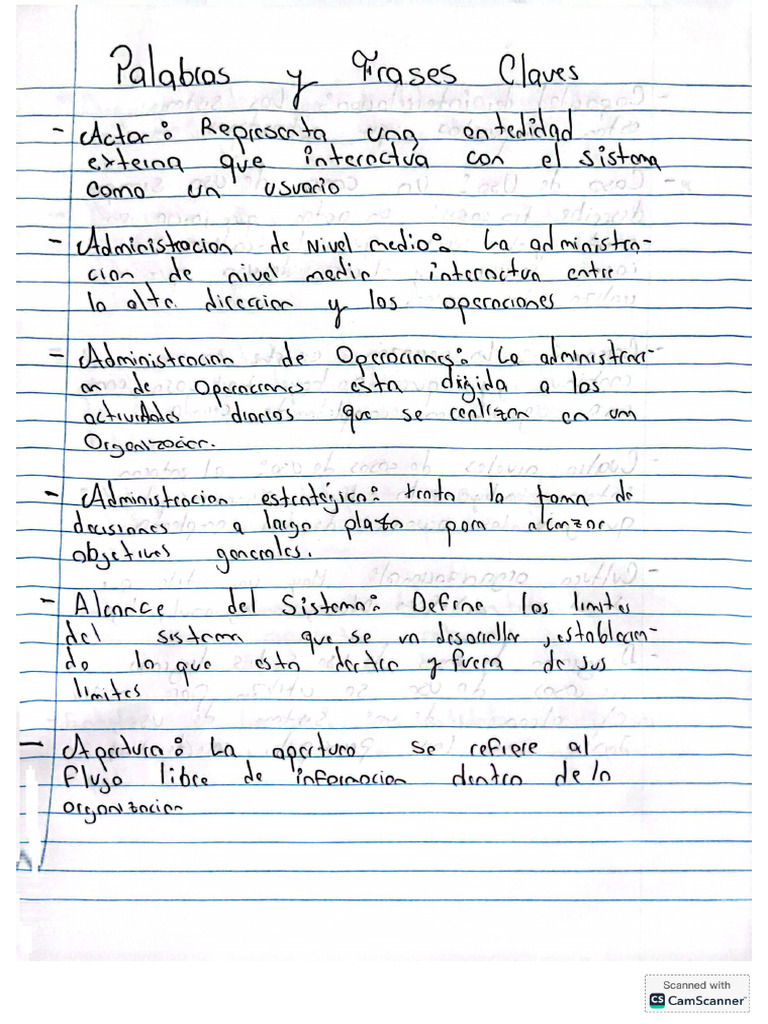 Palabras y Frases Claves
- Actor: Representa una entedidad
externa que interactúa con el sistema
como un usuario
- Administracion de Nivel medio: La administra-
cion de nivel medio interactua entre
la alta direccion y las operaciones
- Administracion de Operaciones: La administraci-
on de Operaciones esta dirigida a las
actividades diarias que se realizan en un
Organizacion.
- Administracion estratégica: trata la toma de
decisiones a largo plazo para alcanzar
objetivos generales.
- Alcance del Sistema: Define los limites
del sistema que se va desarrollar, establecien-
do lo que esta dentro y fuera de sus
limites
- Apertura: La apertura se refiere al
Flujo libre de informacion dentro de la
organizacion
Scanned with
CS CamScanner